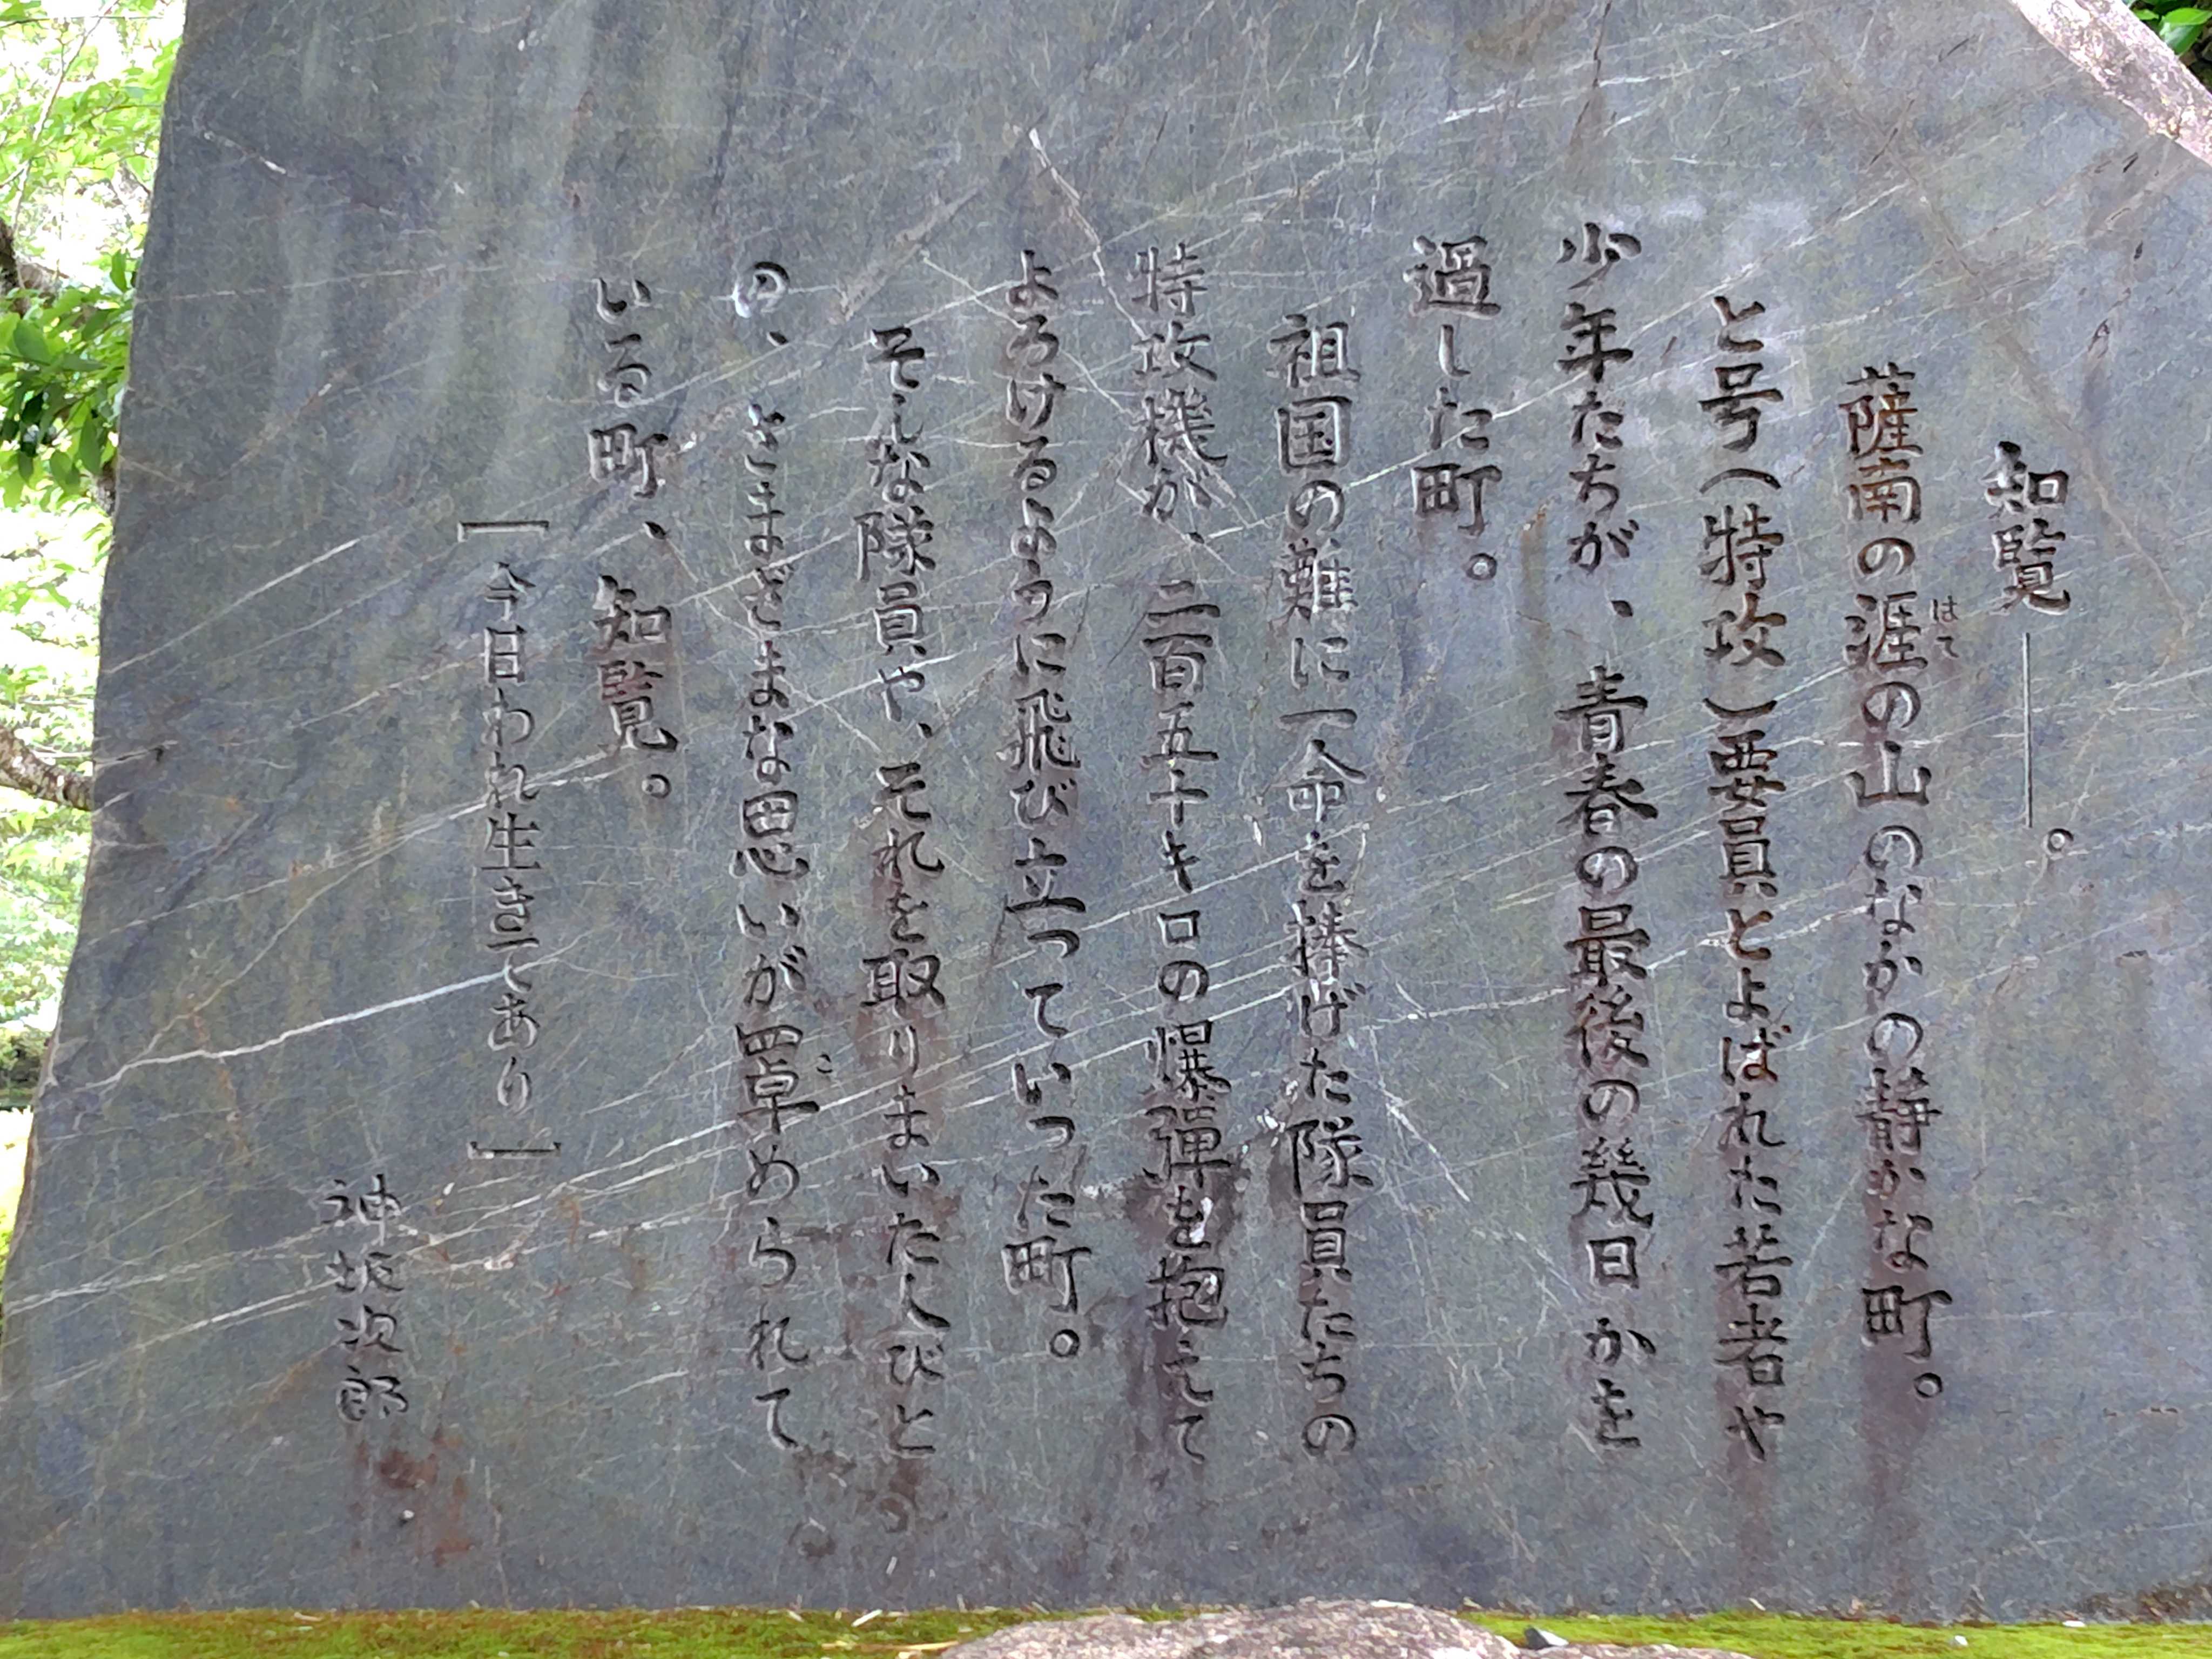 知覧――。
薩南の涯の山のなかの静かな町。
はて
と号（特攻）要員とよばれた若者や
少年たちが、青春の最後の幾日かを
過した町。
祖国の難に一命を捧げた隊員たちの
特攻機が、二百五十キロの爆弾を抱えて
よろけるように飛び立っていった町。
そんな隊員や、それを取りまいた人びと
の、さまざまな思いが罩められて
こ
いる町、知覧。
「今日われ生きてあり」
神坂次郎